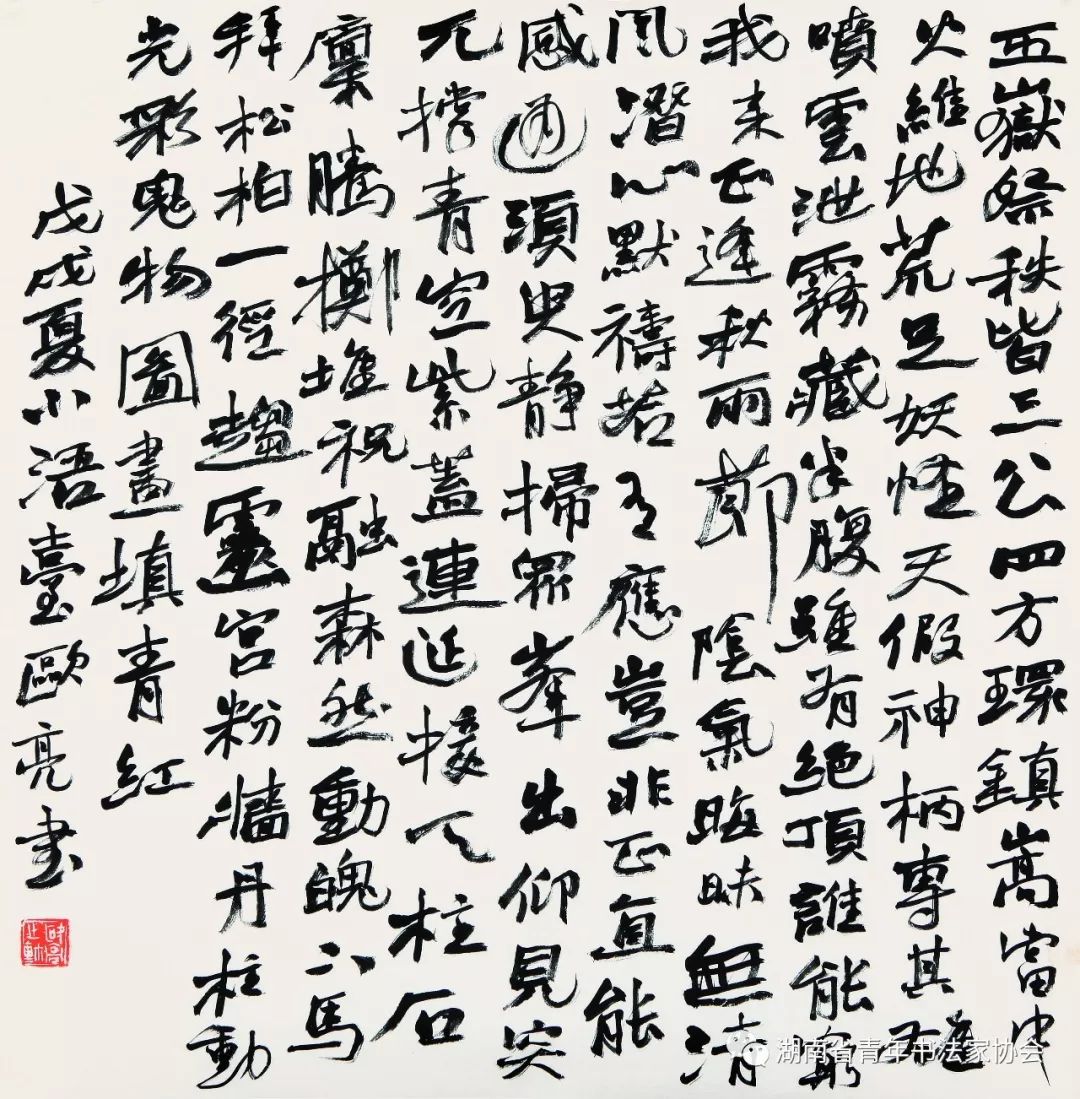 五嶽祭秩皆三公四方環鎮嵩當中
火維地荒足妖怪天假神柄專其雄
噴雲泄霧藏半腹雖有絕頂誰能窮
我來正逢秋雨節陰氣晦昧無清
風潛心默禱若有應豈非正直能
感通須臾靜掃眾峯出仰見突
兀撐青空紫蓋連延接天柱石
廩騰擲堆祝融森然動魄下馬
拜松柏一徑趨靈宮粉牆丹柱動
光彩鬼物圖畫填青紅
戊戌夏小浯臺歐亮書
湖南省青年书法家协会